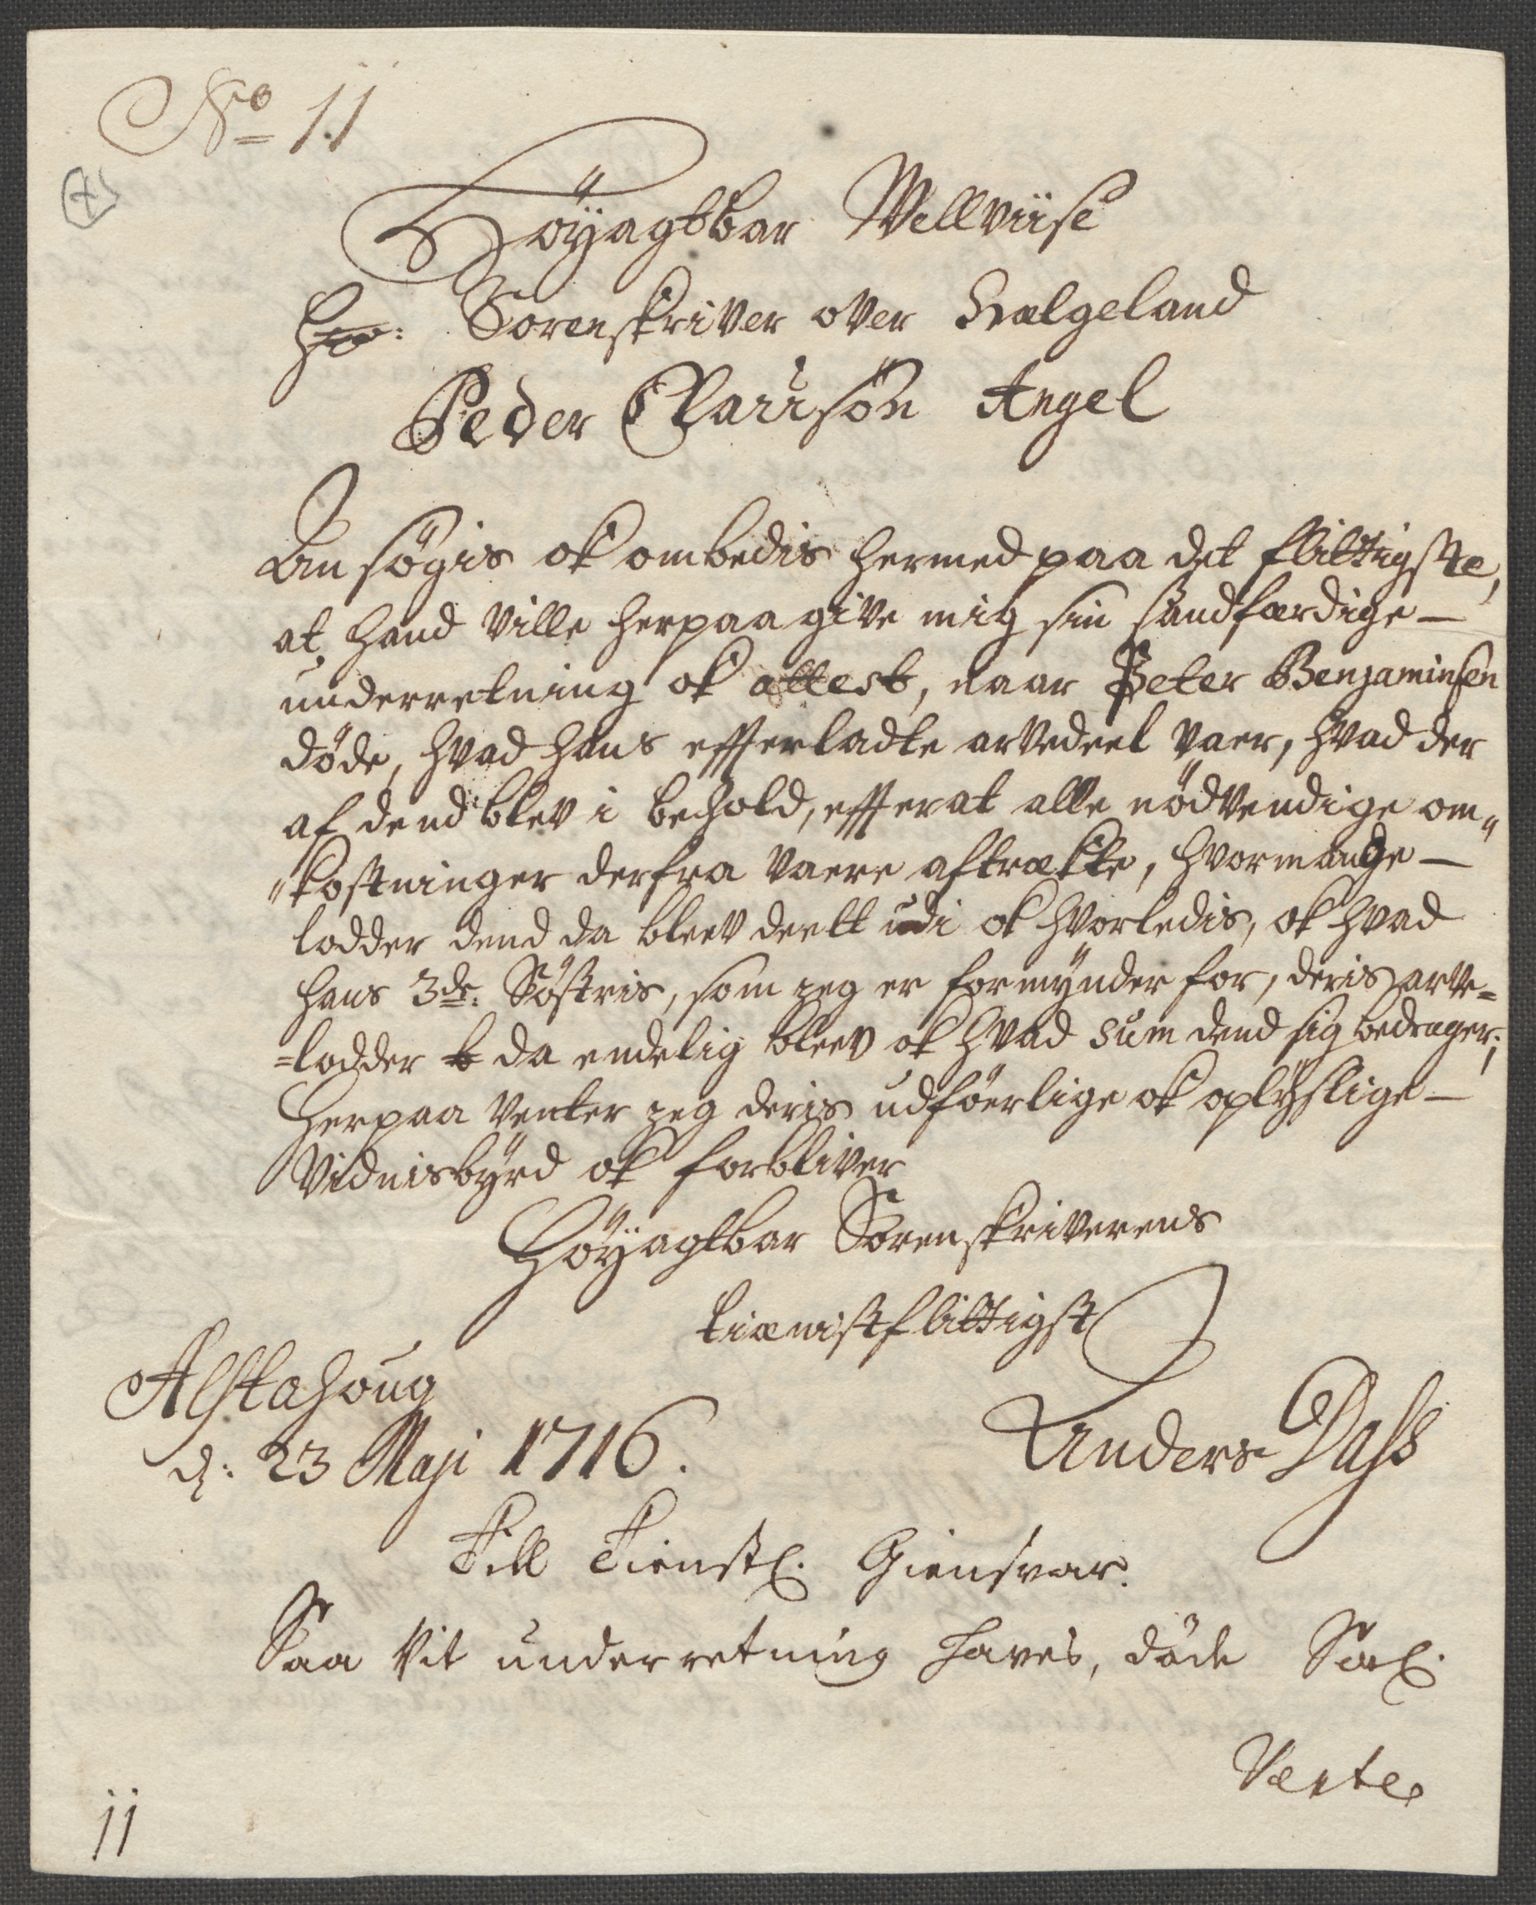 No 11
Höÿagtbar Wellviise
Hr: Sorenskriver over Helgeland
Peder Clausön Angel
Ansøgis ok ombedis hermed paa det flittigste,
at hand ville herpaa give mig sin sandfærdige –
underretning ok attest, naar Peter Benjaminsen
døde, hvad hans effterladte arvedeel vaer, hvad der
af dend blev i behold, effterat alle nödvendige om„
„kostninger derfra vaere aftrækte, hvormange –
lodder dend da bleev deelt udi ok hvorledis, ok hvad
hans 3de: Söstris, som jeg er formÿnder for, deris arve=
=lodder da endelig bleev ok hvad sum dend sig bedrager;
Herpaa venter jeg deris udföerlige ok oplÿslige –
Vidnisbÿrd ok forbliver
Höÿagtbar Sorenskriverens
tienistflittigst
Alstahoug
d: 23 Maji 1716.
Anders Dass
Till Tienstl. Giensvar.
Saa vit underretning haves, döde Sal.
Verte
11